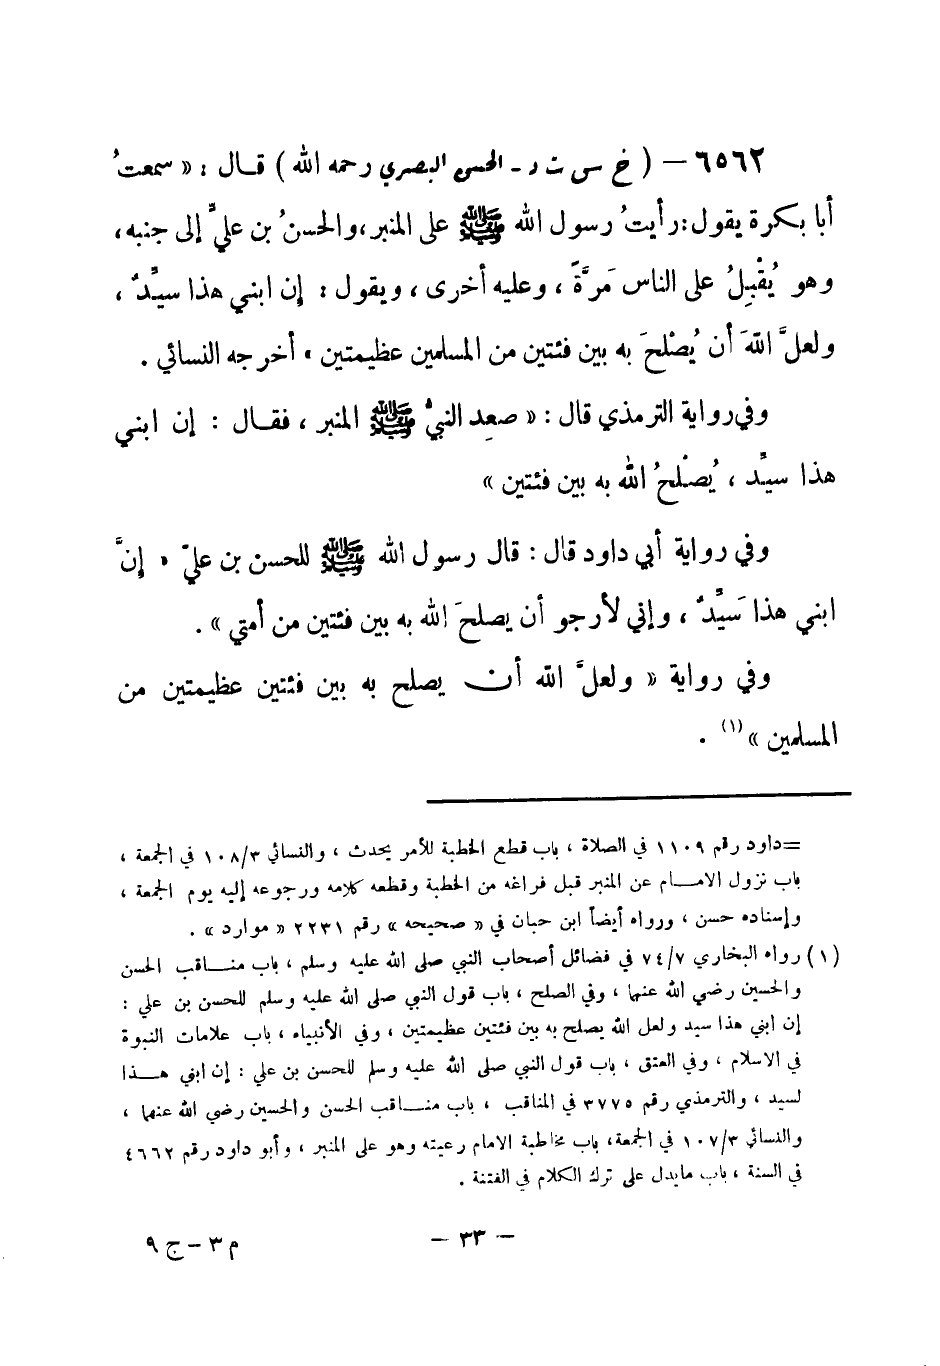 ٦٥٦٢ – ( خ س ت د - الحسن البصري رحمه الله ) قال : « سمعتُ
أبا بكرة يقول : رأيتُ رسول الله ﷺ على المنبر ، والحسنُ بن عليٍّ إلى جنبه ،
وهو يُقْبِلُ على الناس مَرَّةً ، وعليه أخرى ، ويقول : إن ابني هذا سيِّدٌ ،
ولعلَّ اللهَ أن يُصْلحَ به بين فئتين من المسلمين عظيمتين » أخرجه النسائي .
وفي رواية الترمذي قال : « صعِد النبيُّ ﷺ المنبر ، فقال : إن ابني
هذا سيِّد ، يُصْلحُ الله به بين فئتين »
وفي رواية أبي داود قال : قال رسول الله ﷺ للحسن بن عليّ « إنَّ
ابني هذا سَيِّدٌ ، وإني لأرجو أن يصلحَ الله به بين فئتين من أمتي » .
وفي رواية « ولعلَّ الله أن يصلح به بين فئتين عظيمتين من
المسلمين » (١) .
= داود رقم ١١٠٩ في الصلاة ، باب قطع الخطبة للأمر يحدث ، والنسائي ١٠٨/٣ في الجمعة ،
باب نزول الامام عن المنبر قبل فراغه من الخطبة وقطعه كلامه ورجوعه إليه يوم الجمعة ،
وإسناده حسن ، ورواه أيضاً ابن حبان في « صحيحه » رقم ٢٢٣١ « موارد » .
(١) رواه البخاري ٧٤/٧ في فضائل أصحاب النبي صلى الله عليه وسلم ، باب مناقب الحسن
والحسين رضي الله عنهما ، وفي الصلح ، باب قول النبي صلى الله عليه وسلم للحسن بن علي :
إن ابني هذا سيد ولعل الله يصلح به بين فئتين عظيمتين ، وفي الأنبياء ، باب علامات النبوة
في الاسلام ، وفي العتق ، باب قول النبي صلى الله عليه وسلم للحسن بن علي : إن ابني هذا
لسيد ، والترمذي رقم ٣٧٧٥ في المناقب ، باب مناقب الحسن والحسين رضي الله عنهما ،
والنسائي ١٠٧/٣ في الجمعة ، باب مخاطبة الامام رعيته وهو على المنبر ، وأبو داود رقم ٤٦٦٢
في السنة ، باب مايدل على ترك الكلام في الفتنة .
– ٣٣ –
م ٣ – ج ٩